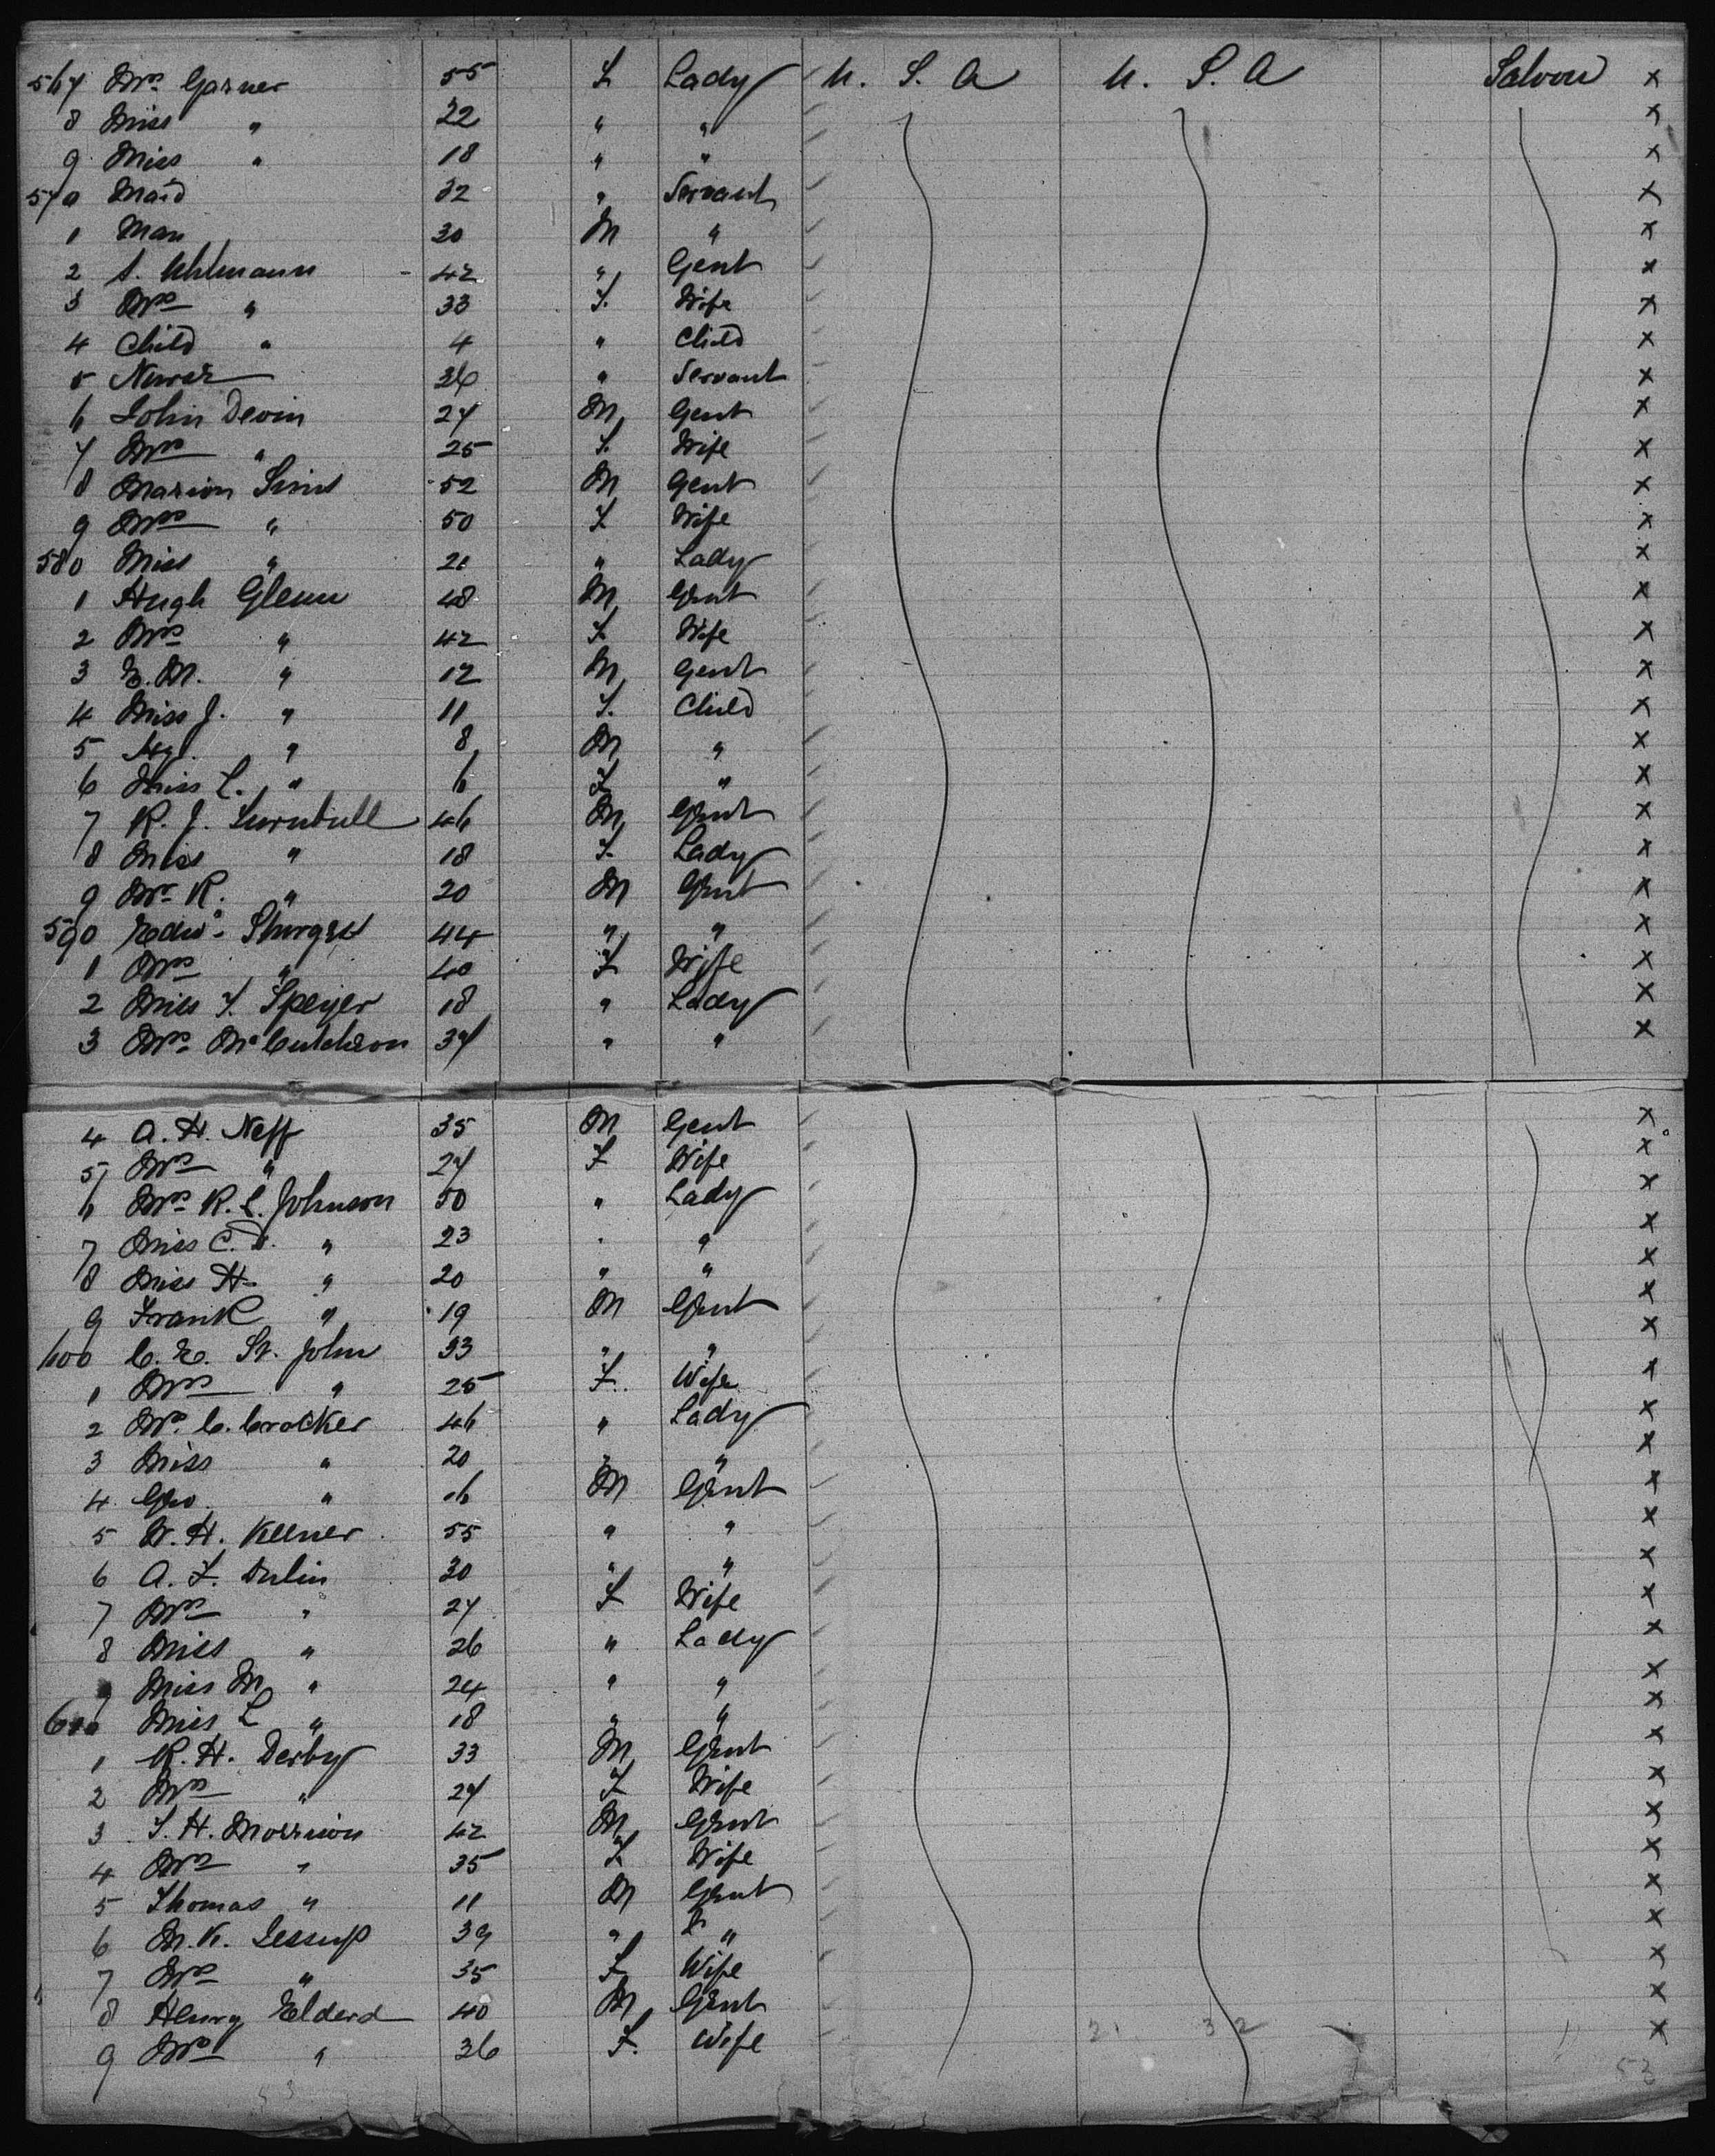 567 Mrs Garner 55 F Lady U. S. A U. S. A Saloon x
8 Miss " 22 " " x
9 Miss " 18 " " x
570 Maid 32 " Servant x
1 Man 30 M " x
2 A. Uhlmann - 42 " Gent x
3 Mrs " 33 F. Wife x
4 Child " 4 " Child x
5 Nurse 36 " Servant x
6 John Devin 27 M Gent x
7 Mrs " 25 F. Wife x
8 Marion Sims 52 M Gent x
9 Mrs " 50 F Wife x
580 Miss " 21 " Lady x
1 Hugh Glenn 48 M Gent x
2 Mrs " 42 F. Wife x
3 E. M. " 12 M Gent x
4 Miss J. " 11 F. Child x
5 " 8 M " x
6 Miss L. " 6 F " x
7 R. J. Turnbull 46 M Gent x
8 Miss " 18 F. Lady x
9 Mr R. " 20 M Gent x
590 Edwd Sturges 44 " " x
1 Mrs " 40 F Wife x
2 Miss F. Speyer 18 " Lady x
3 Mrs McCutcheon 37 " " x
4 A. H. Neff 35 M Gent x
5 Mrs " 27 F Wife x
6 Mrs R. L. Johnson 50 " Lady x
7 Miss C. " 23 " " x
8 Miss H. " 20 " " x
9 Frank " 19 M Gent x
600 C. E. St. John 33 " " x
1 Mrs " 25 F. Wife x
2 Mrs C. Crocker 46 " Lady x
3 Miss " 20 " " x
4 Geo. " 16 M Gent x
5 W. H. Keener 55 " " x
6 A. F. Dulin 30 " " x
7 Mrs " 27 F Wife x
8 Miss " 26 " Lady x
9 Miss M " 24 " " x
610 Miss L " 18 " " x
1 R. H. Derby 33 M Gent x
2 Mrs " 27 F Wife x
3 S. H. Morrison 42 M Gent x
4 Mrs " 35 F. Wife x
5 Thomas " 11 M Gent x
6 M. K. Jessup 39 " " x
7 Mrs " 35 F Wife x
8 Henry Elderd 40 M Gent x
9 Mrs " 36 F. Wife 21 32 x
53 53